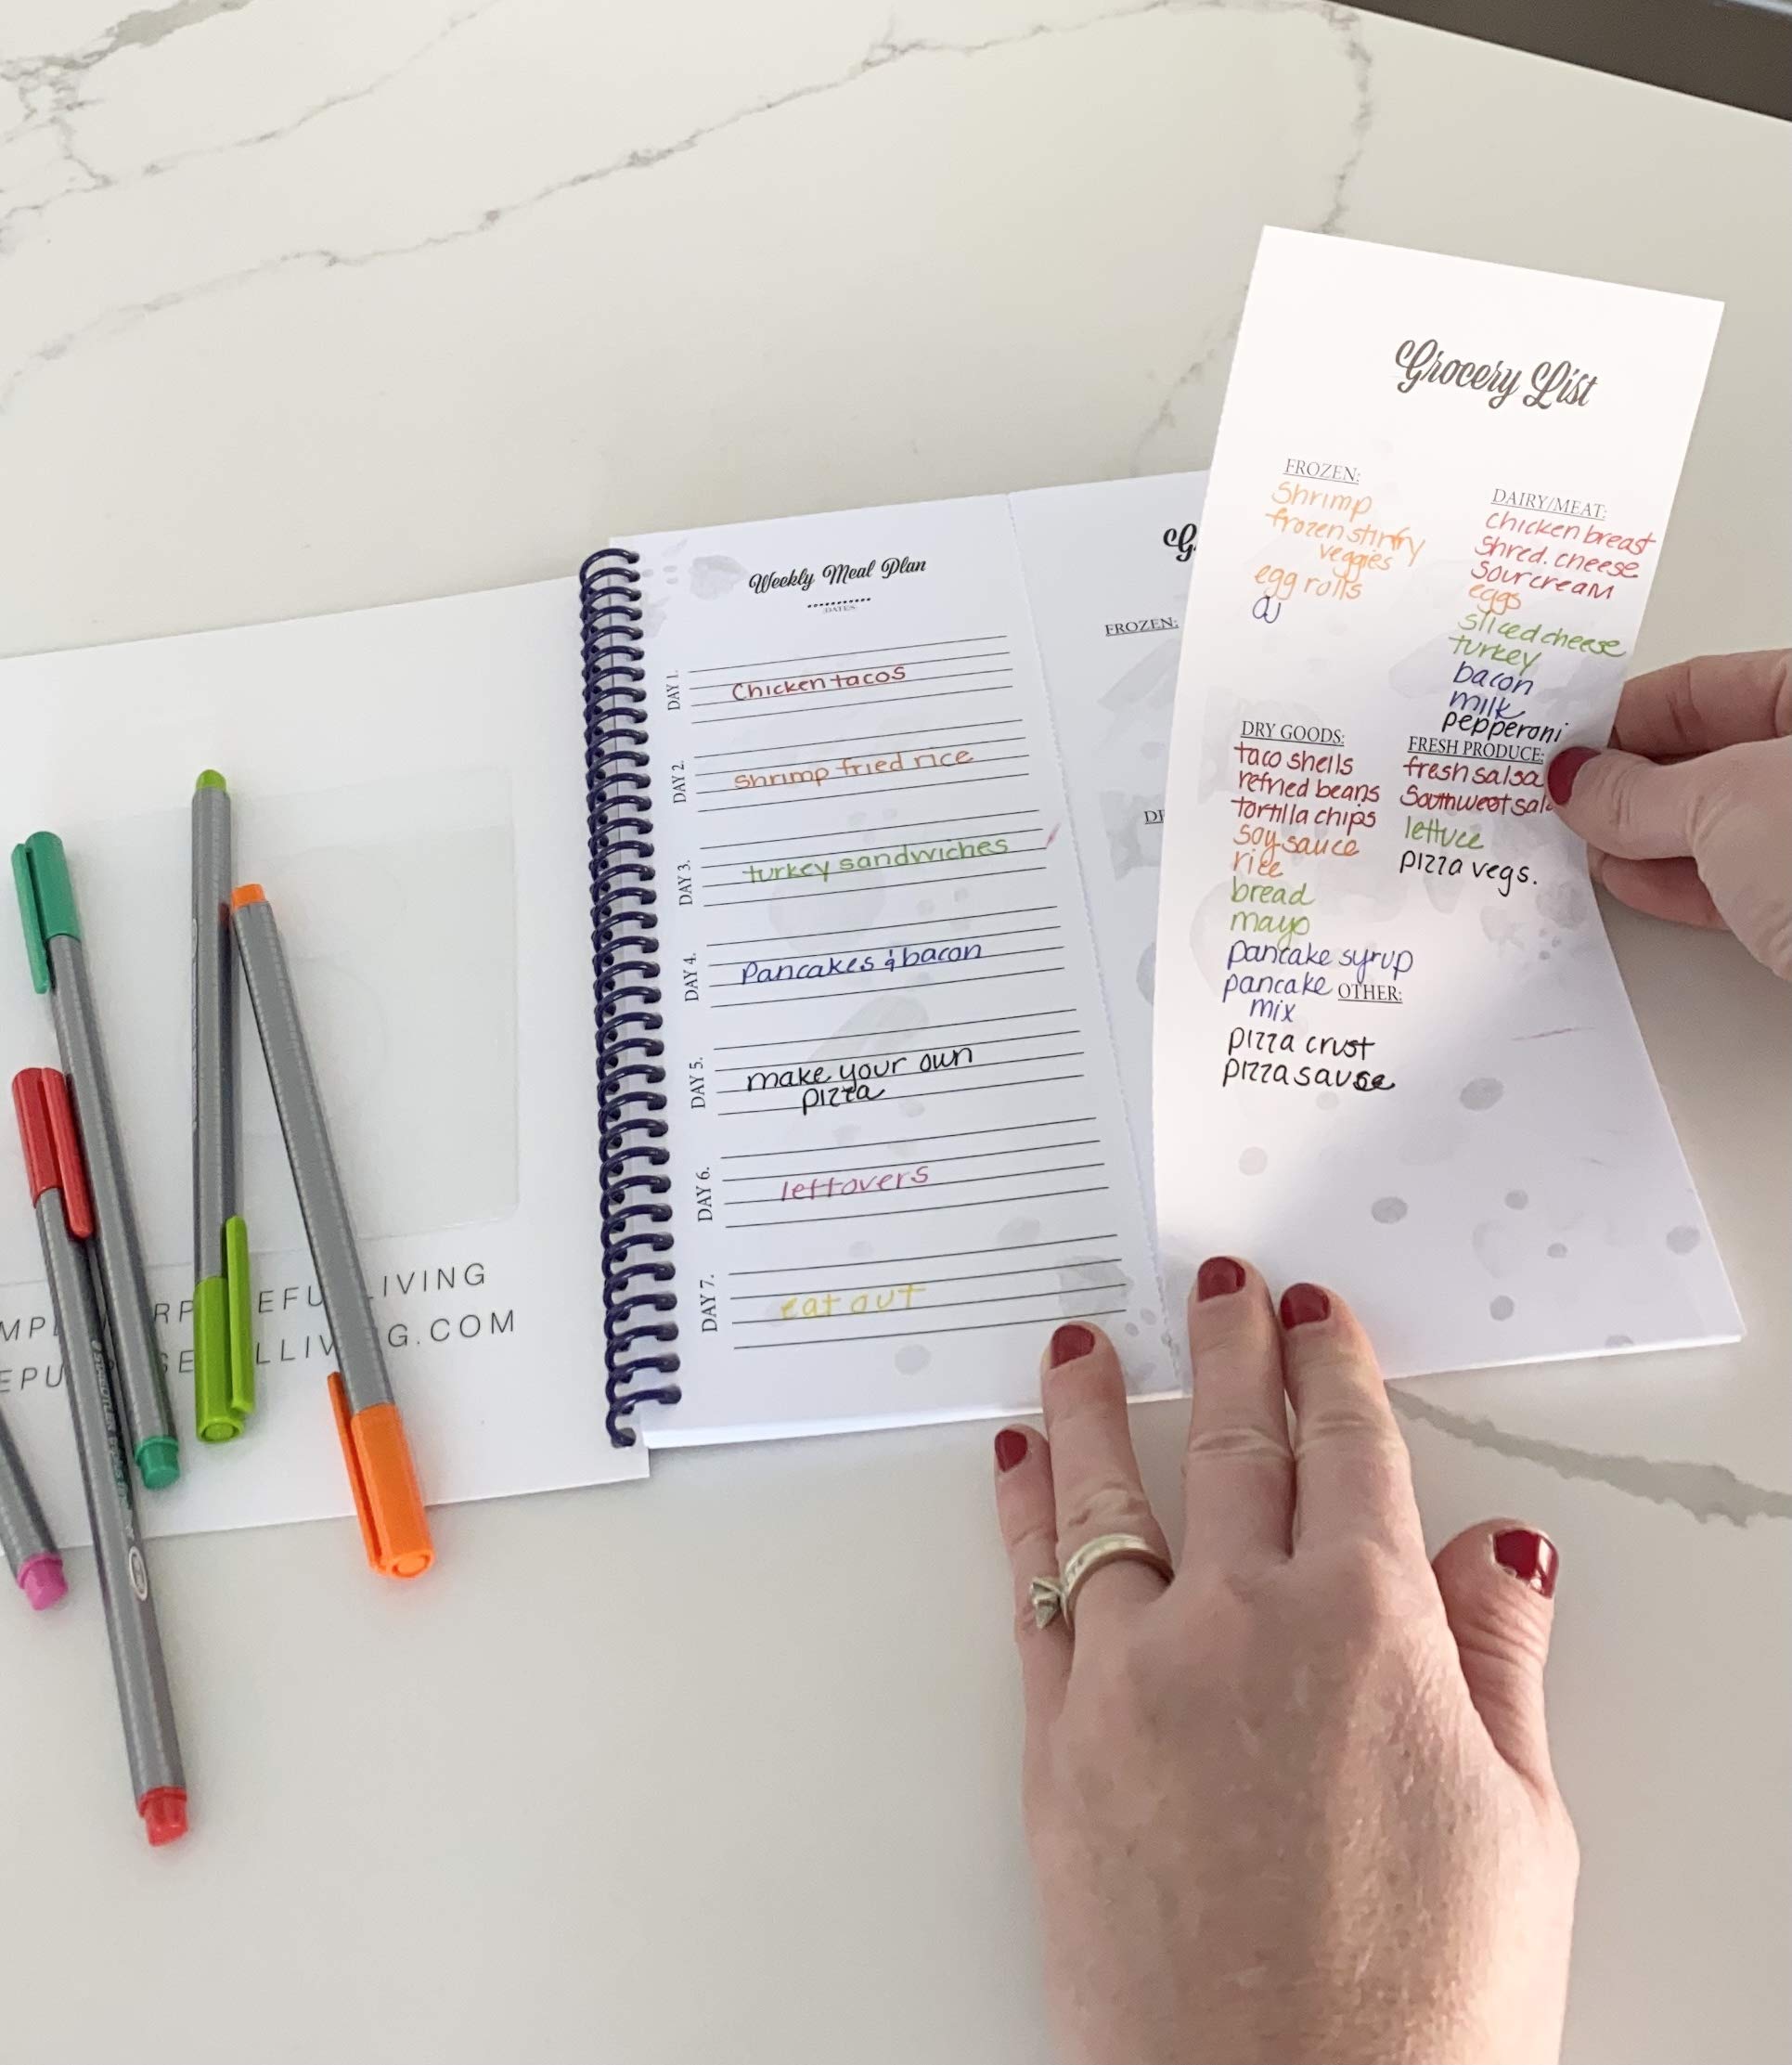 Weekly Meal Plan
DATES
DAY 1.
Chicken tacos
DAY 2.
Shrimp fried rice
DAY 3.
turkey sandwiches
DAY 4.
Pancakes & bacon
DAY 5.
make your own
pizza
DAY 6.
leftovers
DAY 7.
eat out
FROZEN:
Grocery List
FROZEN:
Shrimp
frozen stirfry
veggies
egg rolls
OJ
DAIRY/MEAT:
chicken breast
Shred. cheese
Sour cream
eggs
sliced cheese
turkey
bacon
milk
pepperoni
DRY GOODS:
taco shells
refried beans
tortilla chips
soy sauce
rice
bread
mayo
pancake syrup
pancake
mix
pizza crust
pizza sauce
FRESH PRODUCE:
fresh salsa
Southwest
lettuce
pizza vegs.
OTHER:
IVING
G.COM